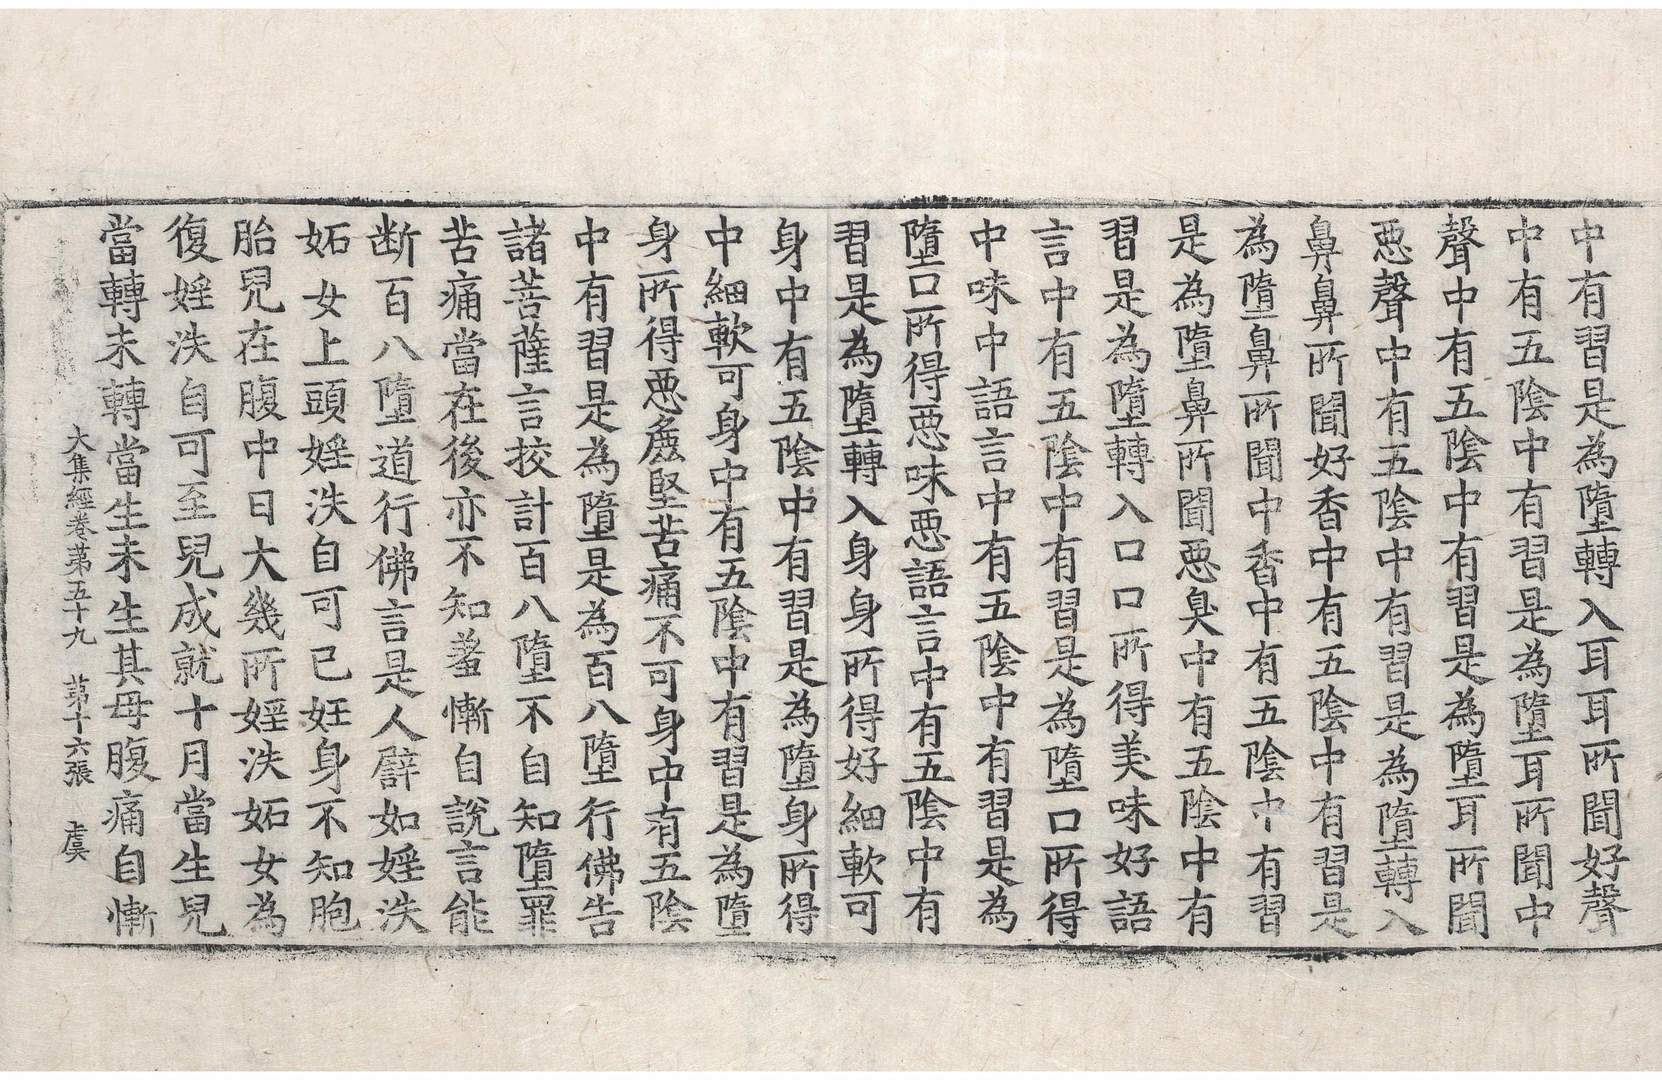 中有習是為墮轉入耳耳所聞好聲
中有五陰中有習是為墮耳所聞中
聲中有五陰中有習是為墮耳所聞
惡聲中有五陰中有習是為墮轉入
鼻鼻所聞好香中有五陰中有習是
為墮鼻所聞中香中有五陰中有習
是為墮鼻所聞惡臭中有五陰中有
習是為墮轉入口口所得美味好語
言中有五陰中有習是為墮口所得
中味中語言中有五陰中有習是為
墮口所得惡味惡語言中有五陰中有
習是為墮轉入身身所得好細軟可
身中有五陰中有習是為墮身所得
中細軟可身中有五陰中有習是為墮
身所得惡麁堅苦痛不可身中有五陰
中有習是為墮是為百八墮行佛告
諸菩薩言挍計百八墮不自知墮罪
苦痛當在後亦不知羞慚自說言能
断百八墮道行佛言是人譬如婬泆
妬女上頭婬泆自可已妊身不知胞
胎兒在腹中日大幾所婬泆妬女為
復婬泆自可至兒成就十月當生兒
當轉未轉當生未生其母腹痛自慚
大集經卷第五十九　第十六張　虞